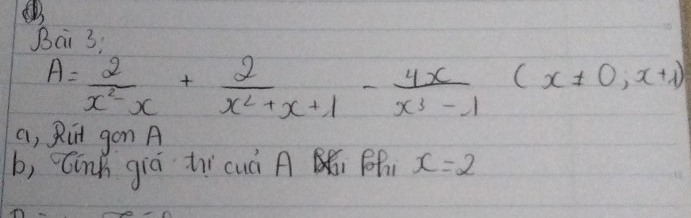 Bài 3:
A = 2/(x² - x) + 2/(x² + x + 1) - 4x/(x³ - 1) (x ≠ 0; x ≠ 1)
a, Rút gọn A
b, Tính giá trị cuả A khi x = 2